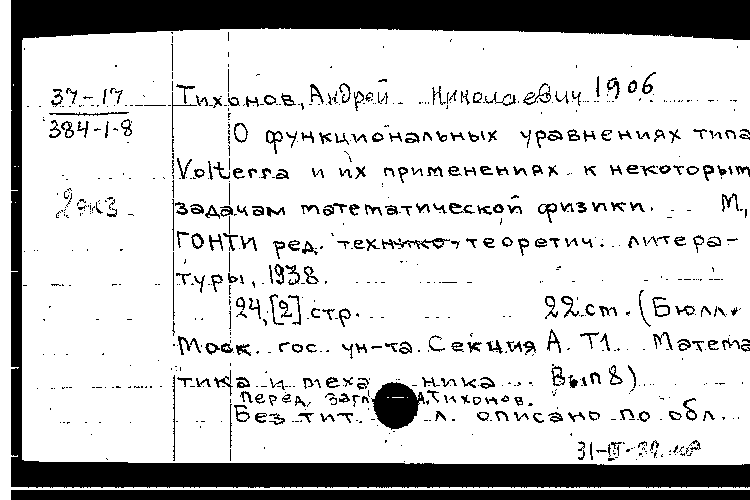 37-17
384-1-8
2 экз
Тихонов, Андрей Николаевич 1906
О функциональных уравнениях типа
Volterra и их применениях к некоторым
задачам математической физики. М.,
ГОНТИ ред. технико-теоретич. литера-
туры, 1938.
24, [2] стр. 22 см. (Бюлл.
Моск. гос. ун-та. Секция А. Т1. Матема
тика и меха ника. Вып 8)
перед загл. А.Тихонов.
Без тит. л. описано по обл.